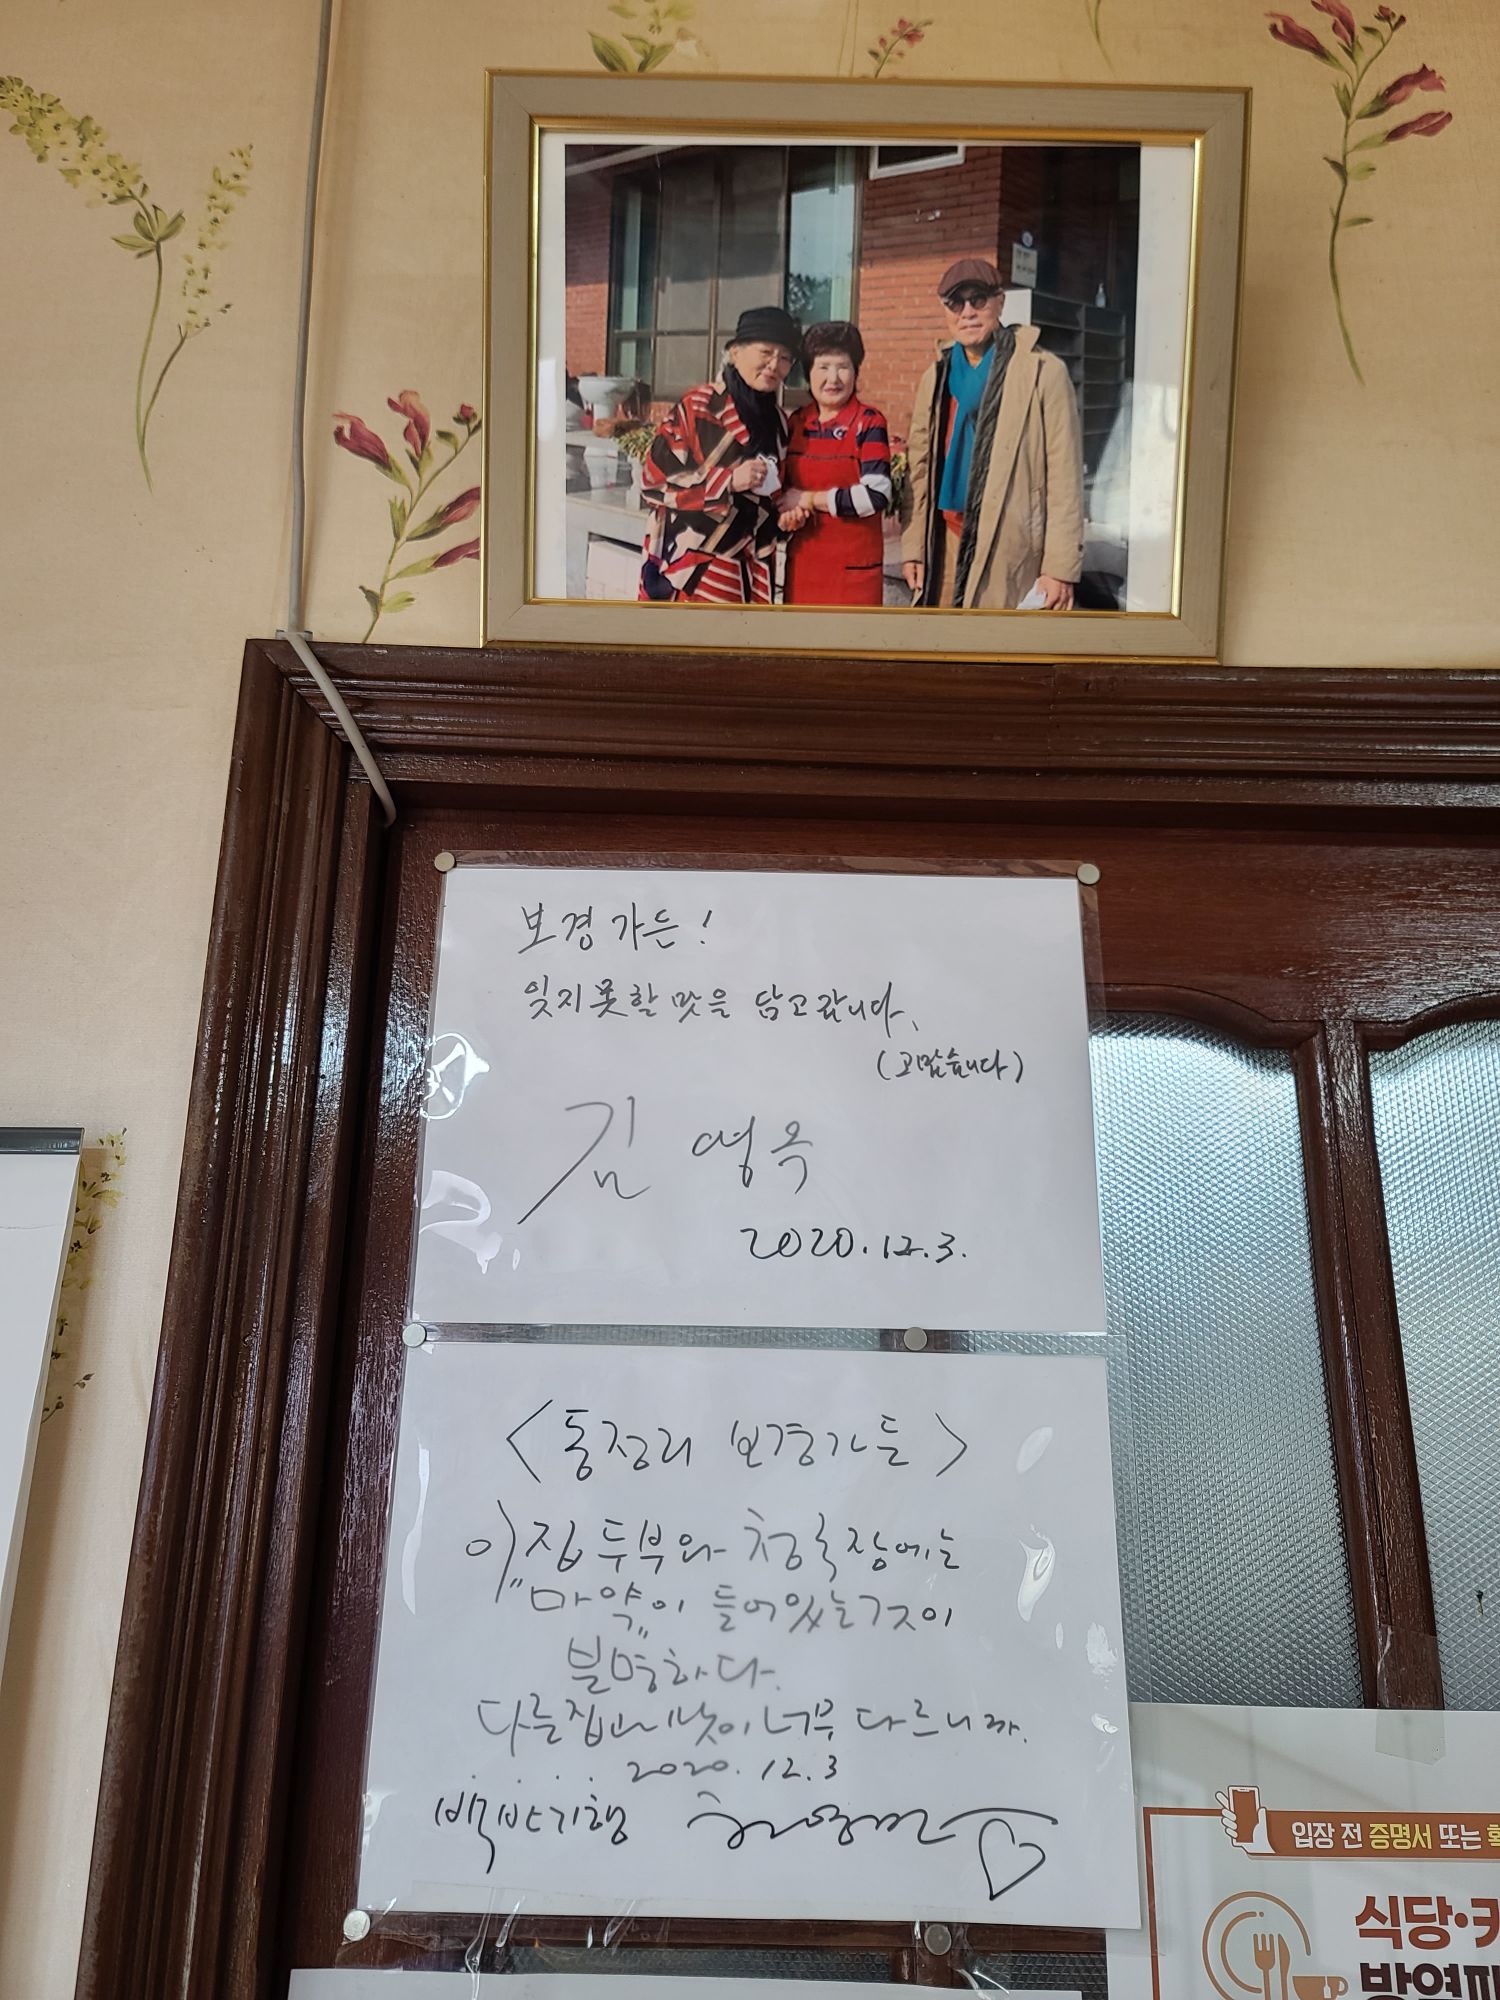 보경가든!
잊지못할 맛을 담고갑니다.
(고맙습니다)
김 영옥
2020.12.3.
<통정리 보경가든>
이집 두부와 청국장에는
"마약"이 들어있는것이
분명하다.
다른집과 맛이 너무 다르니까.
2020.12.3
백반기행 허영만
입장 전 증명서 또는
식당·카
방역패